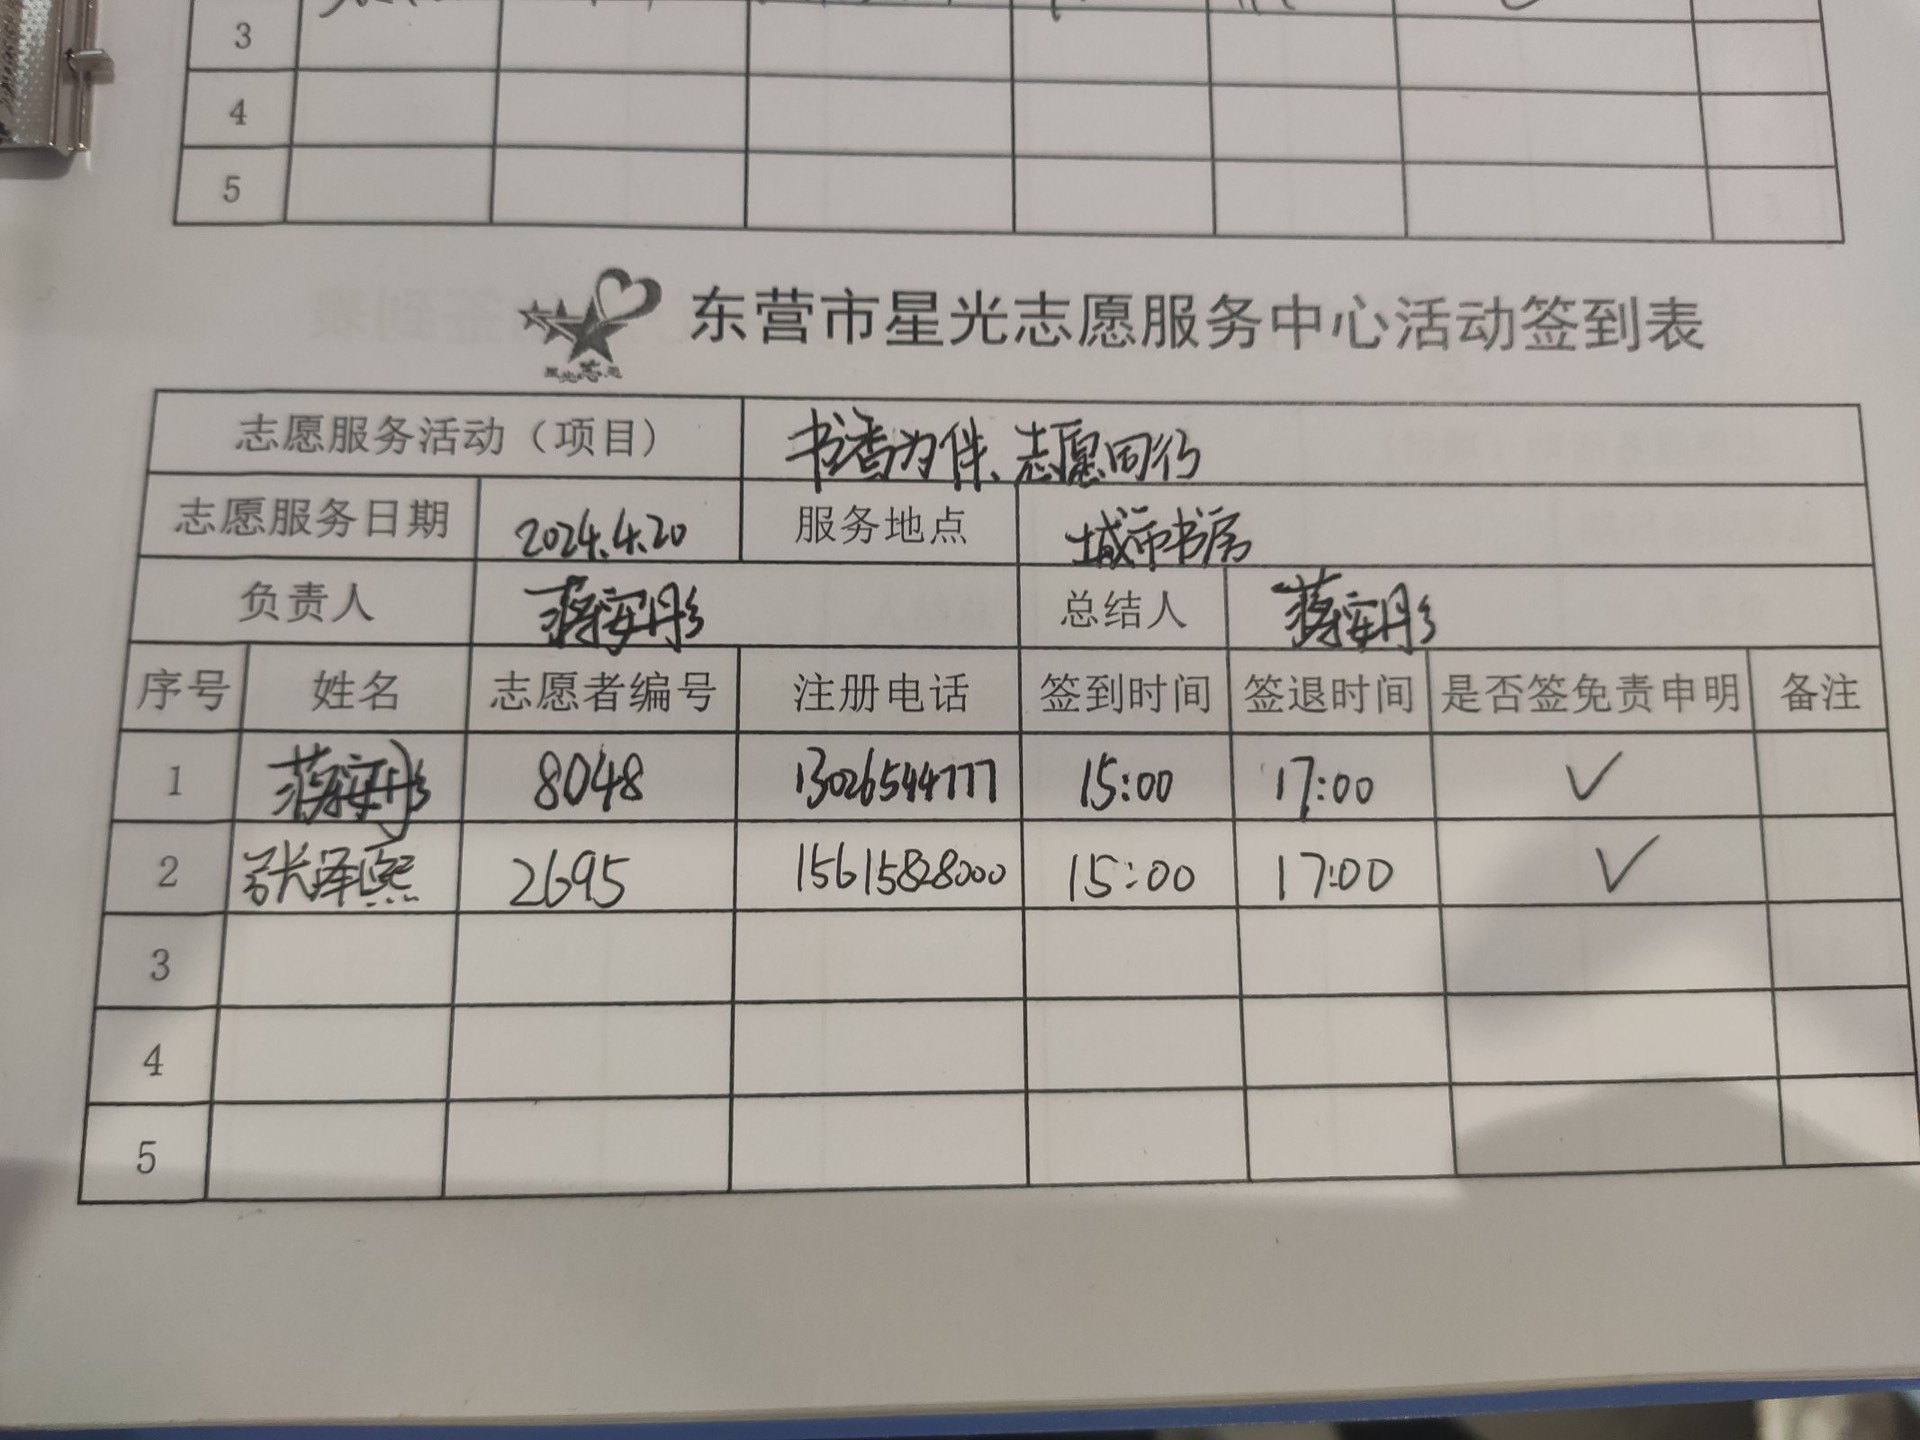 3
4
5
东营市星光志愿服务中心活动签到表
志愿服务活动（项目） 书香为伴、志愿同行
志愿服务日期 2024.4.20 服务地点 城市书房
负责人 蒋安彤 总结人 蒋安彤
序号 姓名 志愿者编号 注册电话 签到时间 签退时间 是否签免责申明 备注
1 蒋安彤 8048 13026544777 15:00 17:00 ✓
2 张泽熙 2695 15615828000 15:00 17:00 ✓
3
4
5